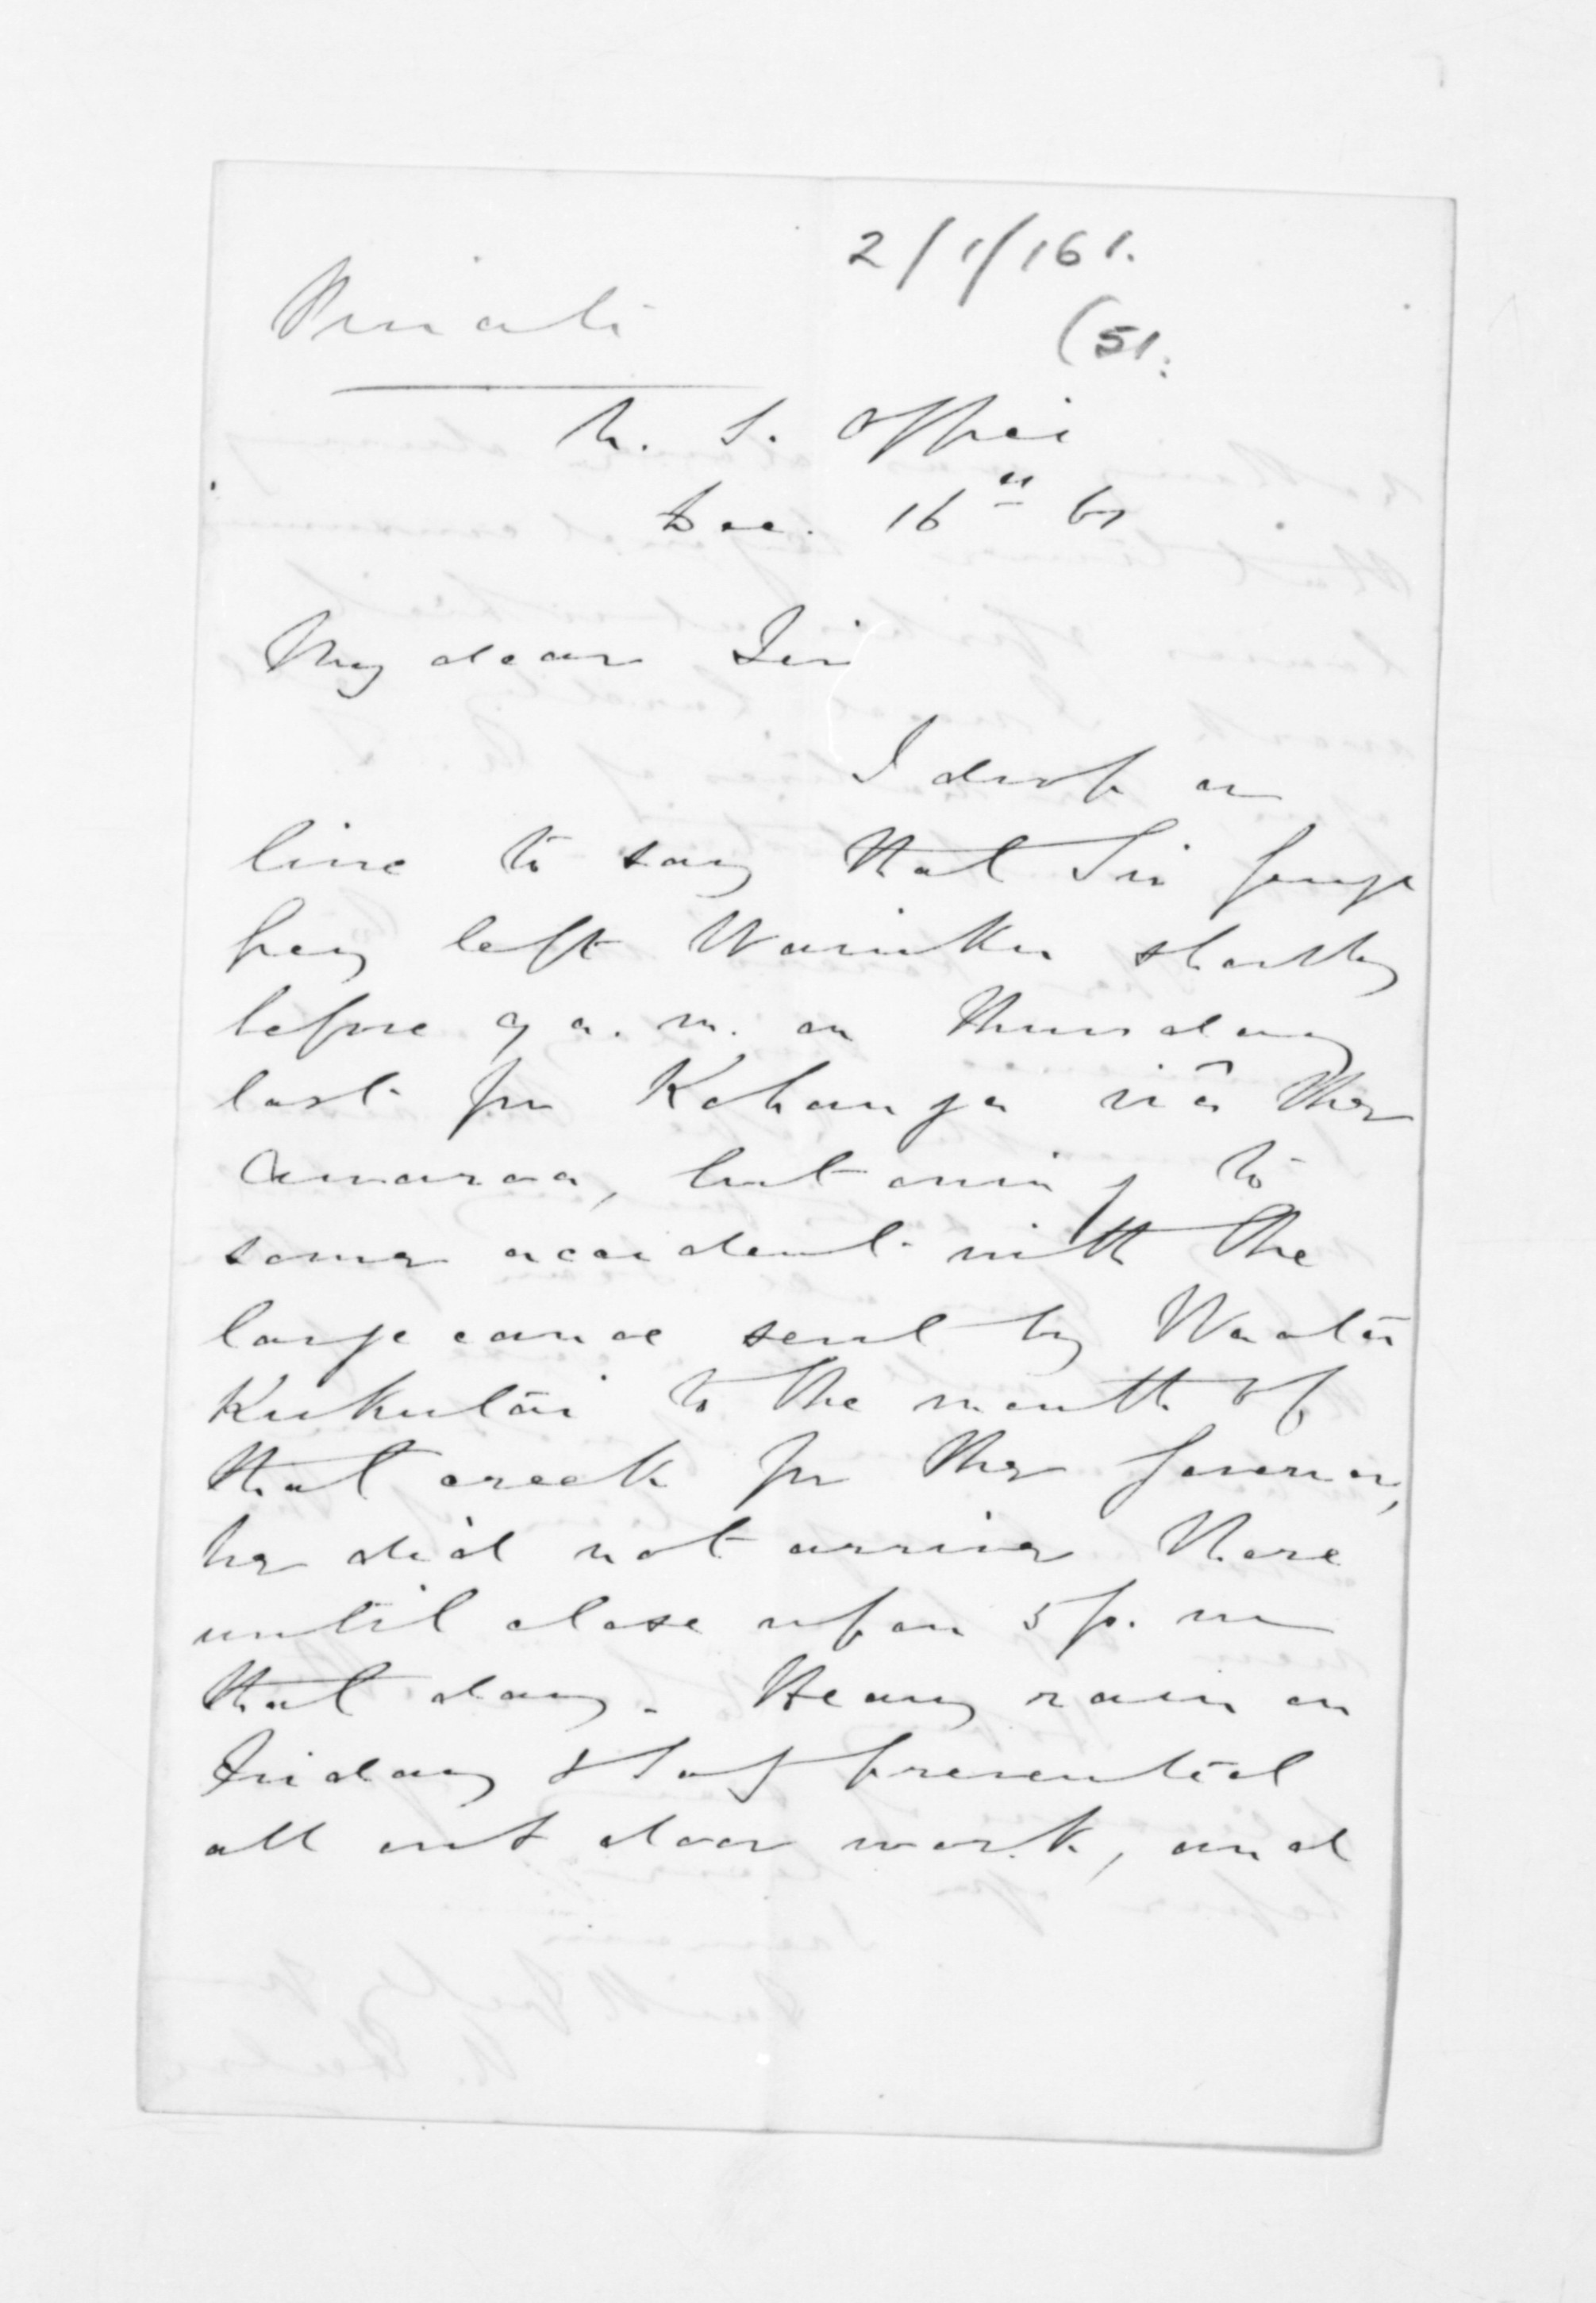 2/1/161.
Private
(51.
N. S. Office
Dec. 16th 61
My dear Sir
I drop a
line to say that Sir George
Grey left Waiuku shortly
before 9 a. m. on Thursday
last for Kohanga viâ the
Awaroa, but owing to
some accident with the
large canoe sent by Waata
Kukutai to the mouth of
that creek for the Governor,
he did not arrive there
until close upon 5 p. m
that day. Heavy rain on
Friday & Saty prevented
all out door work, and